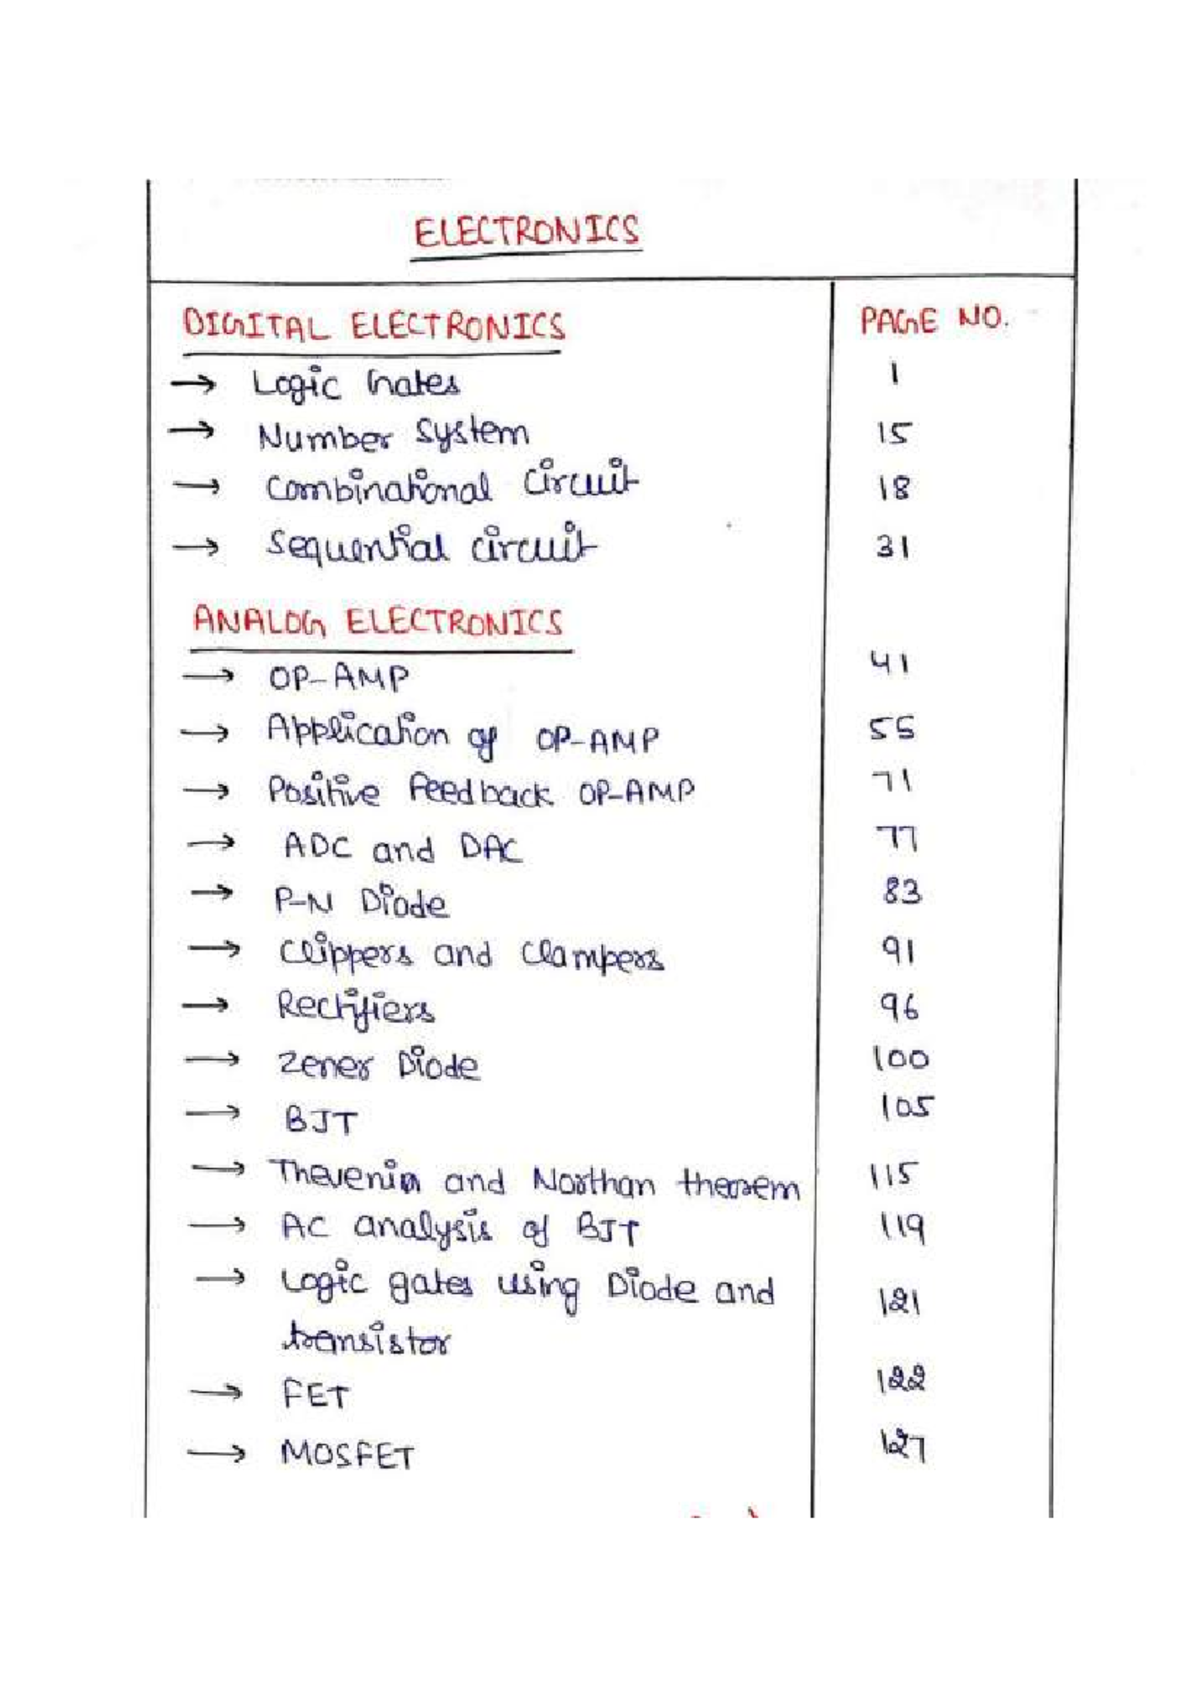 ELECTRONICS
DIGITAL ELECTRONICS PAGE NO.
→ Logic Gates 1
→ Number System 15
→ Combinational Circuit 18
→ Sequential circuit 31
ANALOG ELECTRONICS
→ OP-AMP 41
→ Application of OP-AMP 55
→ Positive feedback OP-AMP 71
→ ADC and DAC 77
→ P-N Diode 83
→ Clippers and Clampers 91
→ Rectifiers 96
→ Zener Diode 100
→ BJT 105
→ Thevenin and Northan theorem 115
→ AC analysis of BJT 119
→ Logic gates using Diode and 121
transistor
→ FET 122
→ MOSFET 127